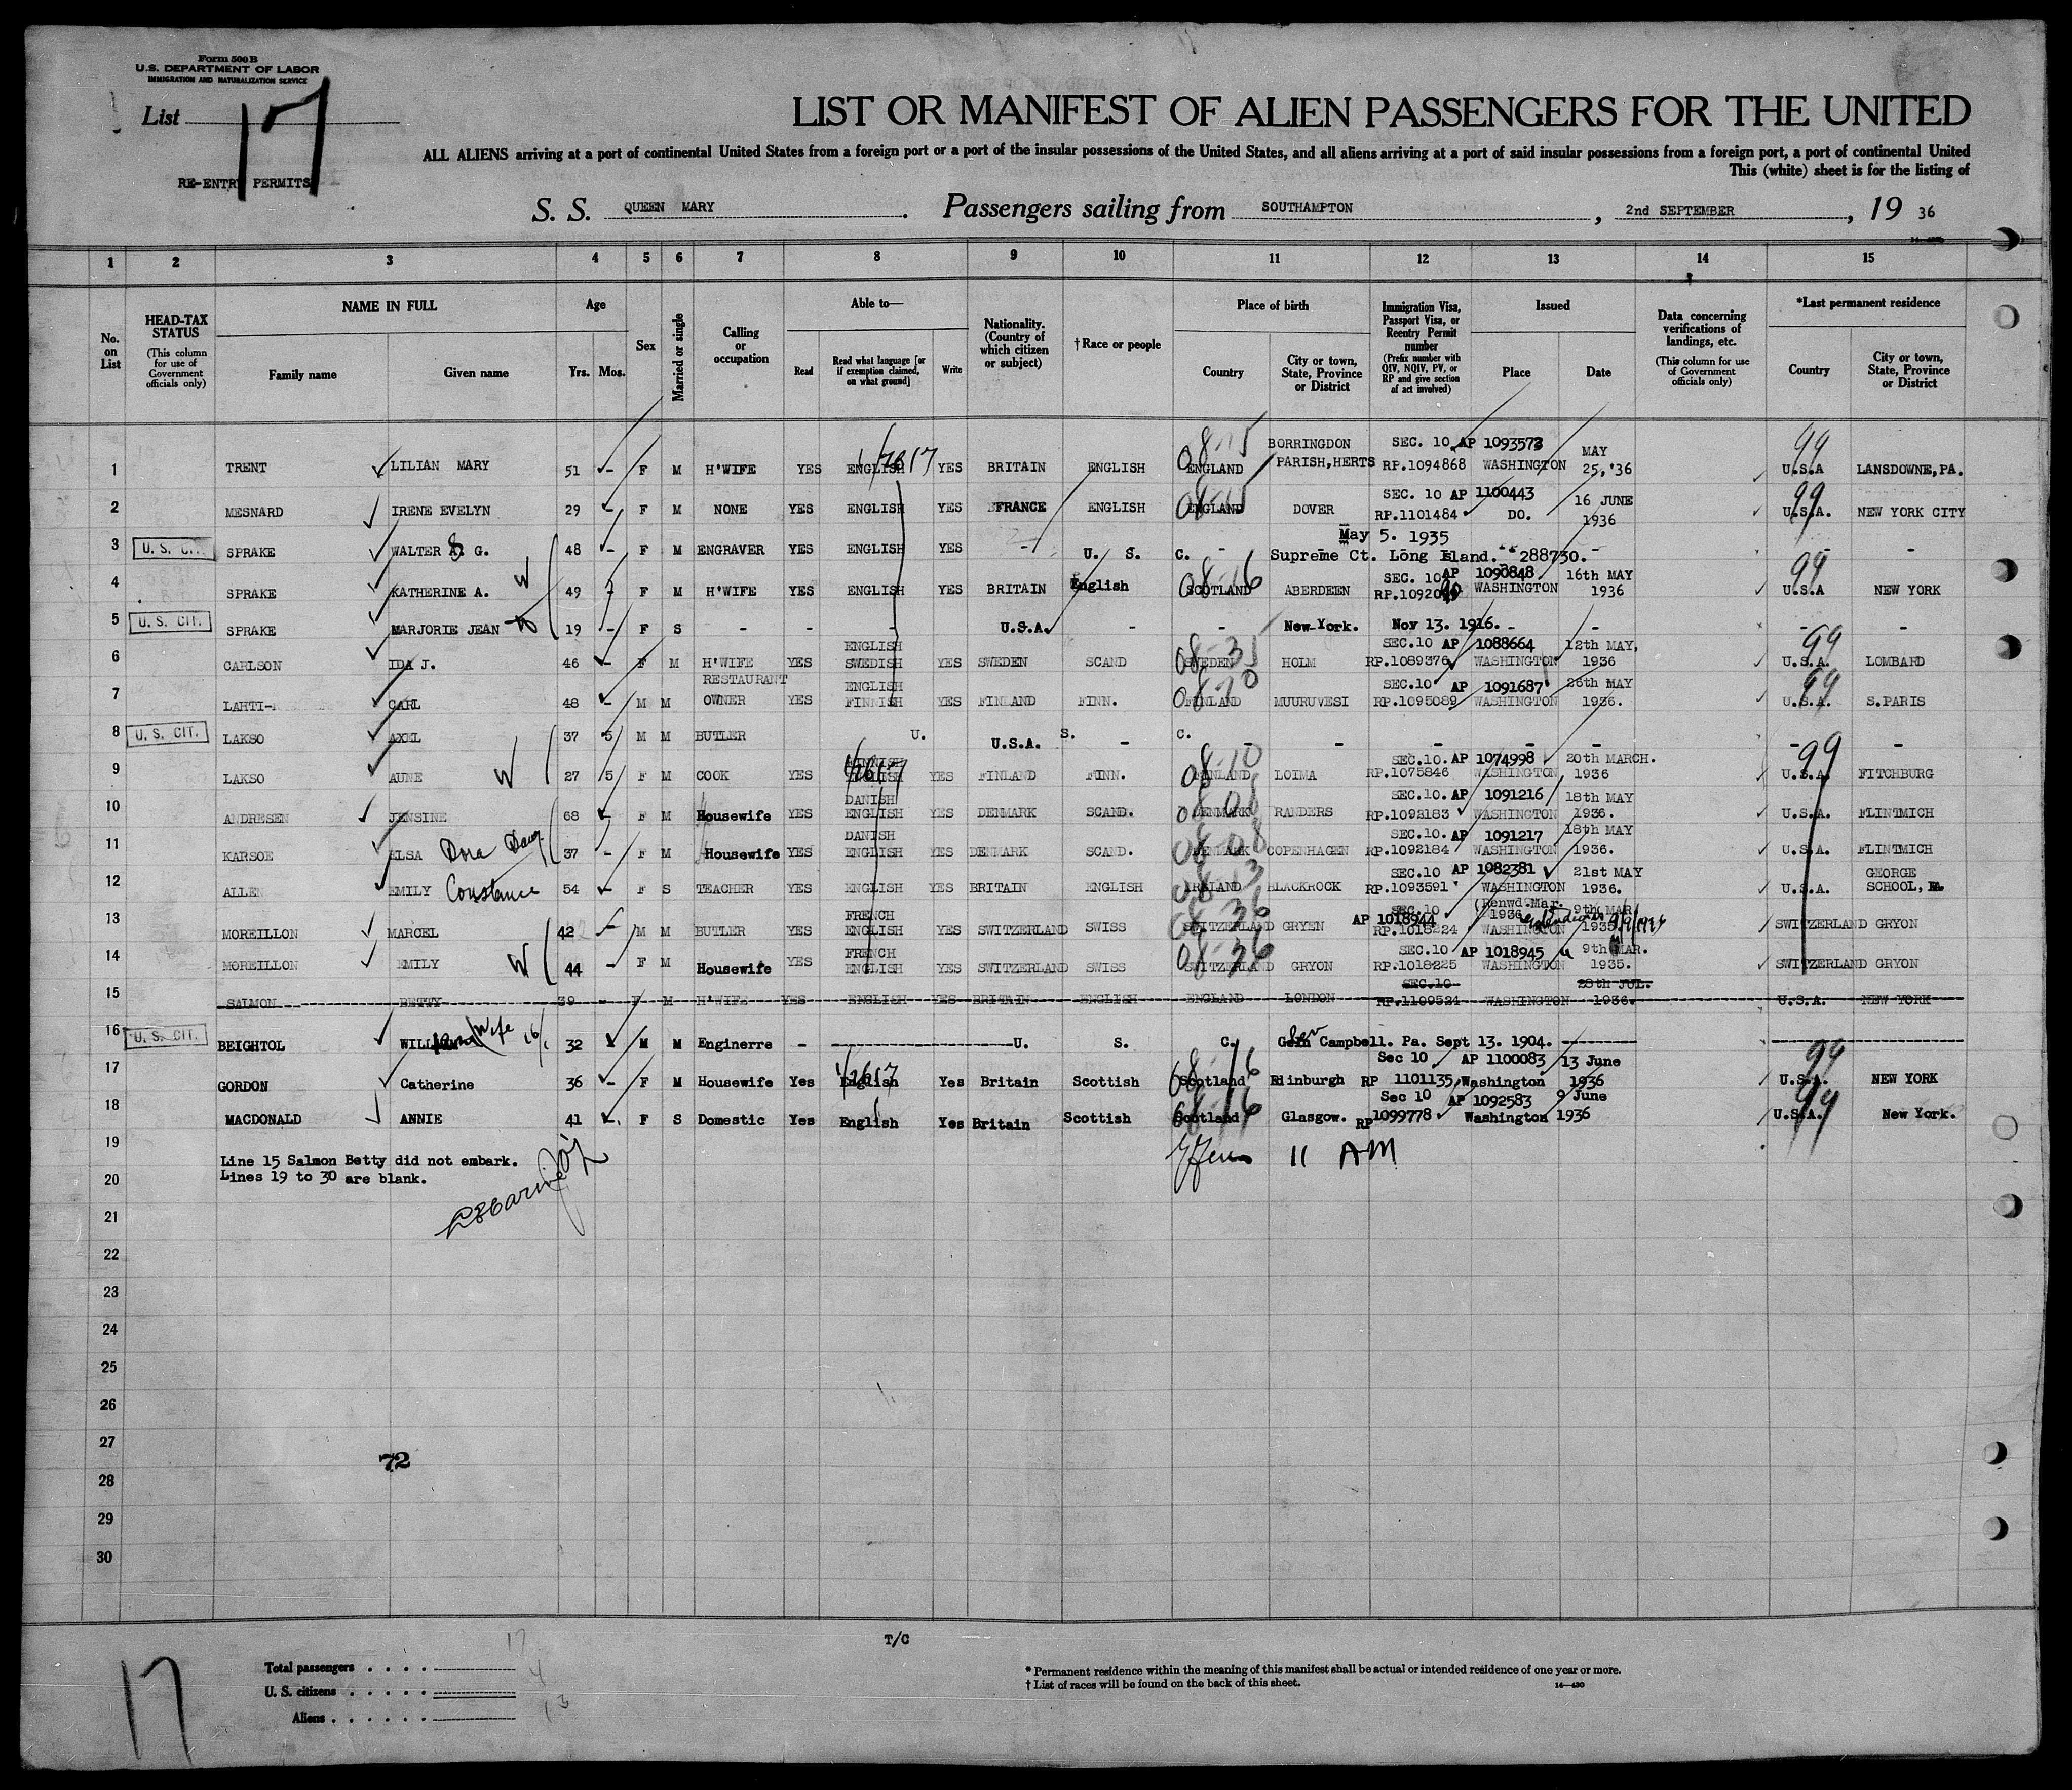 Form 500 B
U.S. DEPARTMENT OF LABOR
IMMIGRATION AND NATURALIZATION SERVICE
List 17
RE-ENTRY PERMITS
LIST OR MANIFEST OF ALIEN PASSENGERS FOR THE UNITED
ALL ALIENS arriving at a port of continental United States from a foreign port or a port of the insular possessions of the United States, and all aliens arriving at a port of said insular possessions from a foreign port, a port of continental United
This (white) sheet is for the listing of
S. S. QUEEN MARY. Passengers sailing from SOUTHAMPTON, 2nd SEPTEMBER, 19 36
1 2 3 4 5 6 7 8 9 10 11 12 13 14 15
No. on List
HEAD-TAX STATUS (This column for use of Government officials only)
NAME IN FULL Family name Given name
Age Yrs. Mos.
Sex
Married or single
Calling or occupation
Able to— Read Read what language [or if exemption claimed, on what ground] Write
Nationality. (Country of which citizen or subject)
†Race or people
Place of birth Country City or town, State, Province or District
Immigration Visa, Passport Visa, or Reentry Permit number (Prefix number with QIV, NQIV, PV, or RP and give section of act involved)
Issued Place Date
Data concerning verifications of landings, etc. (This column for use of Government officials only)
*Last permanent residence Country City or town, State, Province or District
1 TRENT LILIAN MARY 51 - F M H'WIFE YES ENGLISH YES BRITAIN ENGLISH 08-15 ENGLAND BORRINGDON PARISH, HERTS SEC. 10 AP 1093573 RP.1094868 WASHINGTON MAY 25, '36 99 U.S.A LANSDOWNE, PA.
2 MESNARD IRENE EVELYN 29 - F M NONE YES ENGLISH YES FRANCE ENGLISH 08-15 ENGLAND DOVER SEC. 10 AP 1100443 RP.1101484 DO. 16 JUNE 1936 99 U.S.A. NEW YORK CITY
3 U. S. CIT. SPRAKE WALTER G. 48 - F M ENGRAVER YES ENGLISH YES - U. S. C. - May 5. 1935 Supreme Ct. Long Island. 288730. - - -
4 SPRAKE KATHERINE A. W 49 - F M H'WIFE YES ENGLISH YES BRITAIN English 08-16 SCOTLAND ABERDEEN SEC. 10 AP 1090848 WASHINGTON 16th MAY 1936 99 U.S.A NEW YORK
5 U. S. CIT. SPRAKE MARJORIE JEAN 19 - F S - - - - U.S.A. - - New York. Nov 13. 1916. - - - -
6 CARLSON IDA J. 46 - F M H'WIFE YES ENGLISH SWEDISH YES SWEDEN SCAND 08-35 SWEDEN HOLM SEC.10 AP 1088664 RP.1089376 WASHINGTON 12th MAY, 1936 99 U.S.A. LOMBARD
7 LAHTI- CARL 48 - M M RESTAURANT OWNER YES ENGLISH FINNISH YES FINLAND FINN. 08-10 FINLAND MUURUVESI SEC.10 AP 1091687 RP.1095089 WASHINGTON 26th MAY 1936. 99 U.S.A. S.PARIS
8 U. S. CIT. LAKSO AXEL 37 5 M M BUTLER U. U.S.A. S. - C. - - - - - - -
9 LAKSO AUNE W 27 5 F M COOK YES FINNISH ENGLISH YES FINLAND FINN. 08-10 FINLAND LOIMA SEC.10. AP 1074998 RP.1075846 WASHINGTON 20th MARCH. 1936 99 U.S.A. FITCHBURG
10 ANDRESEN JENSINE 68 - F M Housewife YES DANISH ENGLISH YES DENMARK SCAND. 08-08 DENMARK RANDERS SEC.10. AP 1091216 RP.1092183 WASHINGTON 18th MAY 1936. U.S.A. FLINTMICH
11 KARSOE ELSA Dora Daug 37 - F M Housewife YES DANISH ENGLISH YES DENMARK SCAND. 08-08 DENMARK COPENHAGEN SEC.10. AP 1091217 RP.1092184 WASHINGTON 18th MAY 1936. U.S.A. FLINTMICH
12 ALLEN EMILY Constance 54 - F S TEACHER YES ENGLISH YES BRITAIN ENGLISH 08-13 IRELAND BLACKROCK SEC.10 AP 1082381 RP.1093591 WASHINGTON 21st MAY 1936. U.S.A. GEORGE SCHOOL, PA.
13 MOREILLON MARCEL 42 - M M BUTLER YES FRENCH ENGLISH YES SWITZERLAND SWISS 08-36 SWITZERLAND GRYEN SEC.10 AP 1018944 RP.1018224 (Renwd.Mar. 1936 WASHINGTON 9th MAR. 1935 SWITZERLAND GRYON
14 MOREILLON EMILY W 44 - F M Housewife YES FRENCH ENGLISH YES SWITZERLAND SWISS 08-36 SWITZERLAND GRYON SEC.10 AP 1018945 RP.1018225 WASHINGTON 9th MAR. 1935. SWITZERLAND GRYON
15 SALMON BETTY 39 - F M H'WIFE YES ENGLISH YES BRITAIN ENGLISH ENGLAND LONDON SEC.10 RP.1109524 WASHINGTON 28th JUL. 1936. U.S.A. NEW YORK
16 U. S. CIT. BEIGHTOL Wife 16/1 32 M M Enginerre - U. S. C. Campbell. Pa. Sept 13. 1904.
17 GORDON Catherine 36 - F M Housewife Yes English Yes Britain Scottish 08-16 Scotland Edinburgh Sec 10 AP 1100083 RP 1101135 Washington 13 June 1936 99 U.S.A. NEW YORK
18 MACDONALD ANNIE 41 -. F S Domestic Yes English Yes Britain Scottish 08-16 Scotland Glasgow. Sec 10 AP 1092583 RP 1099778 Washington 9 June 1936 99 U.S.A. New York.
19
Line 15 Salmon Betty did not embark.
11 AM
20 Lines 19 to 30 are blank.
21
22
23
24
25
26
27
72
28
29
30
T/C
17
Total passengers . . . . 17
U. S. citizens . . . . . 4
Aliens . . . . . . 13
* Permanent residence within the meaning of this manifest shall be actual or intended residence of one year or more.
† List of races will be found on the back of this sheet.
14—430